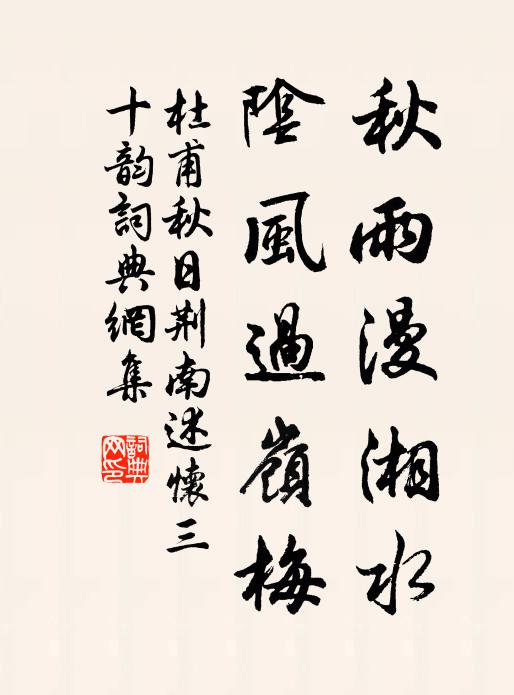 秋雨漫湘水
陰風過嶺梅
杜甫秋日荆南述懷三
十韵詞典網集
詞典
网印